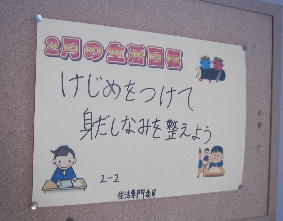 2月の生活目標
けじめをつけて
身だしなみを整えよう
2-2
生活専門委員